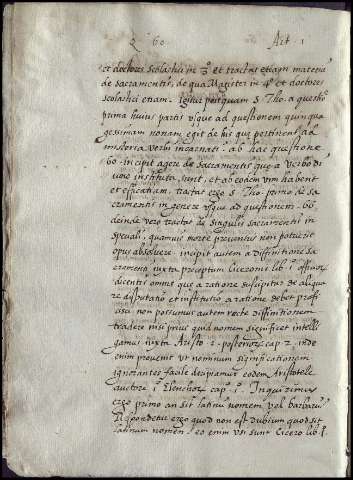 q. 60. Art. 1
et doctores scolastici in 3º et tractat etiam materiā
de sacramentis, de qua Magister in 4º et doctores
scolastici etiam. Igitur postquam S. Tho. a questione
prima huius partis usque ad questionem quinqua
gessimam nonam egit de his que pertinent ad
misteria verbi incarnati. ab hac questione
60. incipit agere de sacramentis que a verbo di
vino instituta sunt, et ab eodem vim habent
et efficatiam, tractat ergo S. Tho. primo de sa
cramentis in genere usque ad questionem .66.
deinde vero tractat de singulis sacramentis in
speciali, quamvis morte preventus non potuerit
opus absolvere. incipit autem a diffinitione sa
cramenti iuxta preceptum Ciceronis lib. 1. officior
dicentis omnis que a ratione suscipitur de aliqua
re disputatio et institutio a ratione debet profi
cisci. non possumus autem recte diffinitionem
tradere nisi prius quid nomen significet intelli
gamus iuxta Aristo. 1. posterior cap. 2. inde
enim provenit ut nominum significationem
ignorantes facile decipiamur eodem Aristotele
auctore 1. Elenchor cap. 1. Inquirimus
ergo primo an sit latinū nomen vel barbarū
Respondetur ergo quod non est dubium quod sit
latinum nomen. eo enim usi sunt Cicero lib. 1.